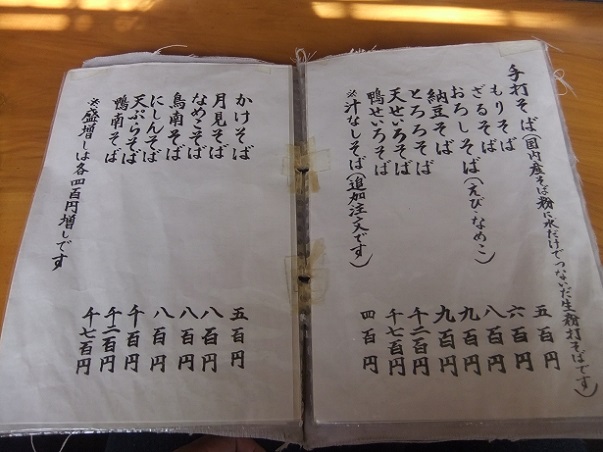 手打そば(国内産そば粉に水だけでつないだ生粉打そばです)
もりそば 五百円
ざるそば 六百円
おろしそば(えび・なめこ) 八百円
納豆そば 九百円
とろろそば 九百円
天せいろそば 千二百円
鴨せいろそば 千七百円
※汁なしそば(追加注文です) 四百円
かけそば 五百円
月見そば 八百円
なめこそば 八百円
鳥南そば 八百円
にしんそば 千百円
天ぷらそば 千二百円
鴨南そば 千七百円
※盛増しは各四百円増しです